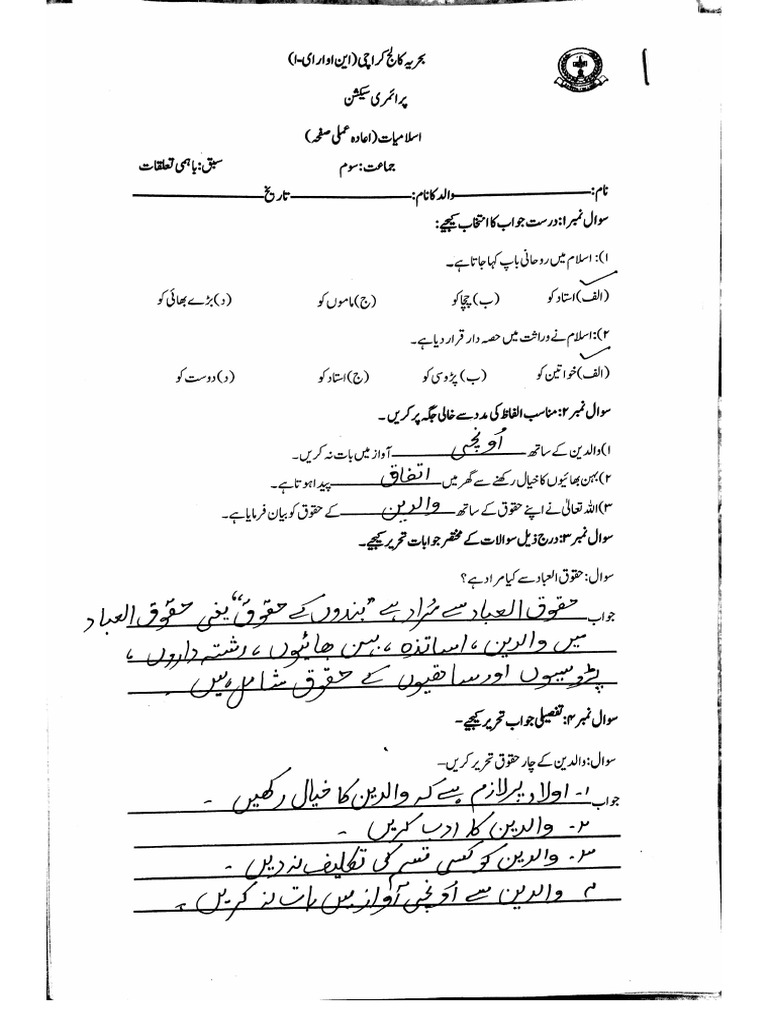 بحریہ کالج کراچی (این او آر ای-۱)
۱
پرائمری سیکشن
اسلامیات (اعادہ عملی صفحہ)
جماعت: سوم سبق: باہمی تعلقات
نام: والد کا نام: تاریخ
سوال نمبر۱: درست جواب کا انتخاب کیجیے:
۱): اسلام میں روحانی باپ کہا جاتا ہے۔
(الف) استاد کو (ب) چچا کو (ج) ماموں کو (د) بڑے بھائی کو
۲): اسلام نے وراثت میں حصہ دار قرار دیا ہے۔
(الف) خواتین کو (ب) پڑوسی کو (ج) استاد کو (د) دوست کو
سوال نمبر۲: مناسب الفاظ کی مدد سے خالی جگہ پر کریں۔
۱) والدین کے ساتھ اُونچی آواز میں بات نہ کریں۔
۲) بہن بھائیوں کا خیال رکھنے سے گھر میں اتفاق پیدا ہوتا ہے۔
۳) اللہ تعالیٰ نے اپنے حقوق کے ساتھ والدین کے حقوق کو بیان فرمایا ہے۔
سوال نمبر۳: درج ذیل سوالات کے مختصر جوابات تحریر کیجیے۔
سوال: حقوق العباد سے کیا مراد ہے؟
جواب حقوق العباد سے مُراد ہے "بندوں کے حقوق" یعنی حقوق العباد
میں والدین، اساتذہ، بہن بھائیوں، رشتہ داروں،
پڑوسیوں اور ساتھیوں کے حقوق شامل ہیں۔
سوال نمبر۴: تفصیلی جواب تحریر کیجیے۔
سوال: والدین کے چار حقوق تحریر کریں۔
جواب ۱- اولاد پر لازم ہے کہ والدین کا خیال رکھیں۔
۲- والدین کا ادب کریں۔
۳- والدین کو کسی قسم کی تکلیف نہ دیں۔
۴ والدین سے اُونچی آواز میں بات نہ کریں۔